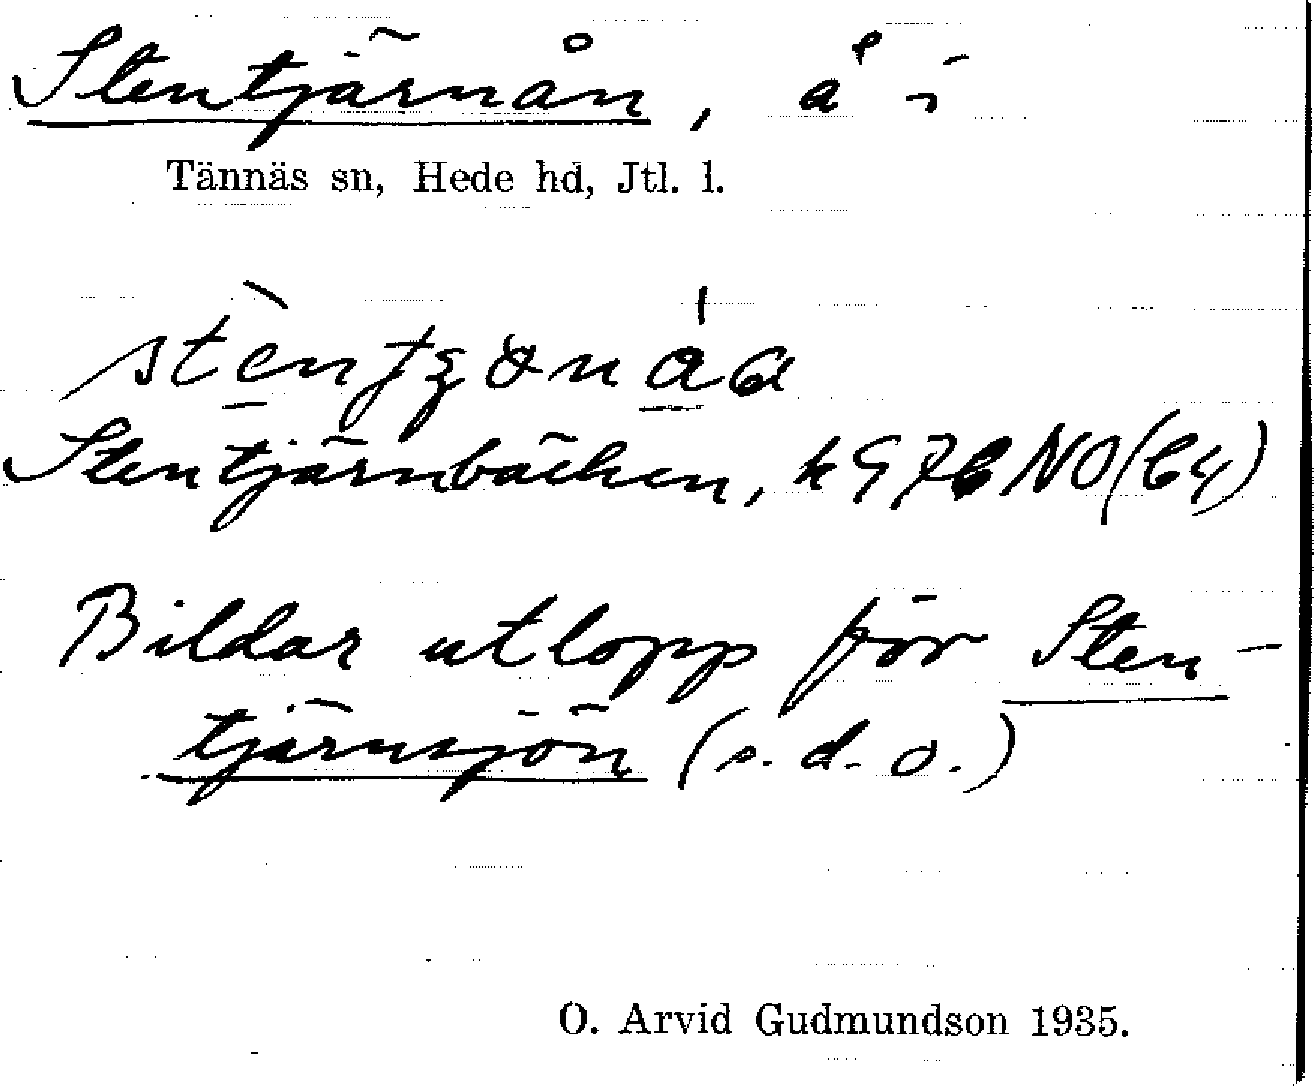 Stentjärnån, å i
Tännäs sn, Hede hd, Jtl. l.
Stentjärnbäcken, k 97 NO (64)
Bildar utlopp för Sten-
tjärnsjön (s. d. o.)
O. Arvid Gudmundson 1935.